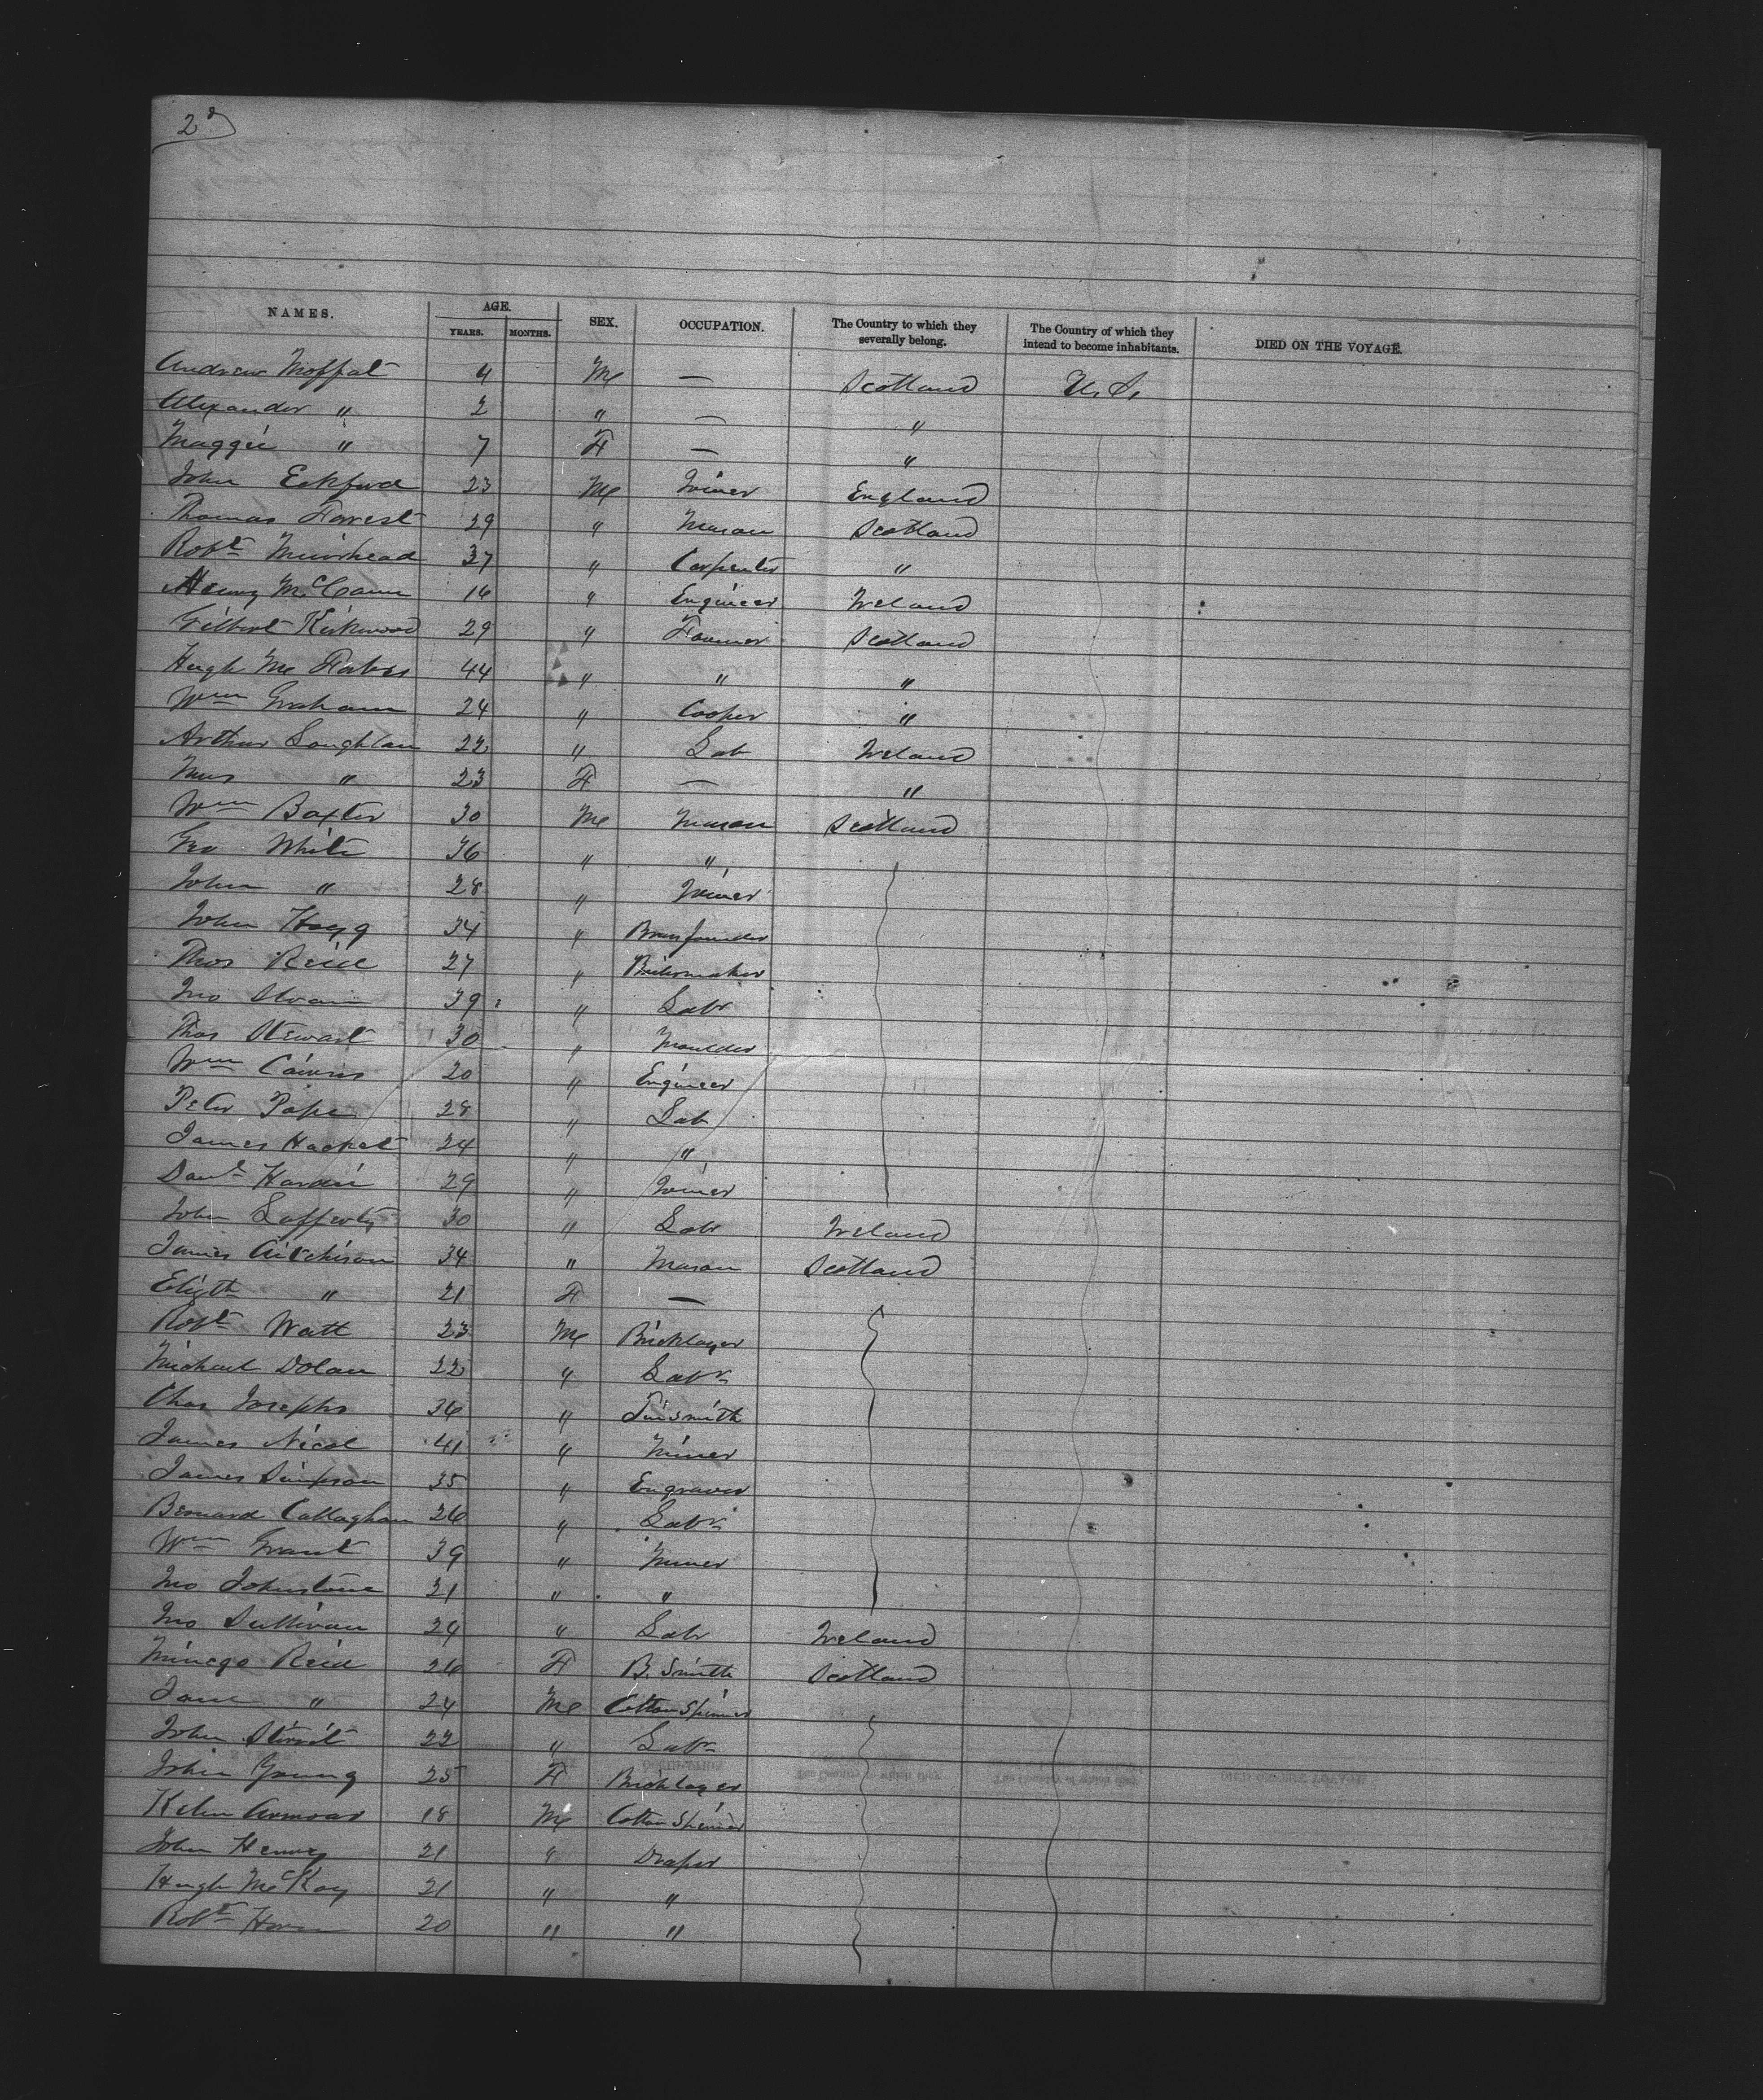 2d
NAMES. AGE. YEARS. MONTHS. SEX. OCCUPATION. The Country to which they severally belong. The Country of which they intend to become inhabitants. DIED ON THE VOYAGE.
Andrew Moffat 4 M — Scotland U.S.
Alexander " 2 " — "
Maggie " 7 F — "
John Eckford 23 M Joiner England
Thomas Forrest 29 " Mason Scotland
Robt Muirhead 37 " Carpenter "
Henry McCann 16 " Engineer Ireland
Gilbert Kirkwood 29 " Farmer Scotland
Hugh Mc 44 " " "
Wm Graham 24 " Cooper "
Arthur Loughlan 22 " Lab Ireland
Mrs " 23 F — "
Wm Baxter 30 M Mason Scotland
Geo White 36 " "
John " 28 " Joiner
John Hogg 34 " Brassfounder
Thos Reid 27 " Boilermaker
Jno 39 " Labr
Thos Stewart 30 " Moulder
Wm Cairns 20 " Engineer
Peter Pope 28 " Lab
James Hacket 24 " "
Danl Hardie 29 " Joiner
John Lafferty 30 " Labr Ireland
James Aitchison 34 " Mason Scotland
Elizth " 21 F —
Robt Watt 23 M Bricklayer
Michael Dolan 22 " Labr
Chas Josephs 36 " Tinsmith
James Nicol 41 " Miner
James Simpson 35 " Engraver
Bernard Callaghan 26 " Labr
Wm Grant 39 " Miner
Jno Johnstone 21 " "
Jno Sullivan 24 " Labr Ireland
Reid 26 F B. Smith Scotland
Jane " 24 M Cotton Spinner
John 22 " Labr
John Young 25 F Bricklayer
Armour 18 M Cotton Spinner
John Henry 21 " Draper
Hugh McKay 21 " "
Robt 20 " "